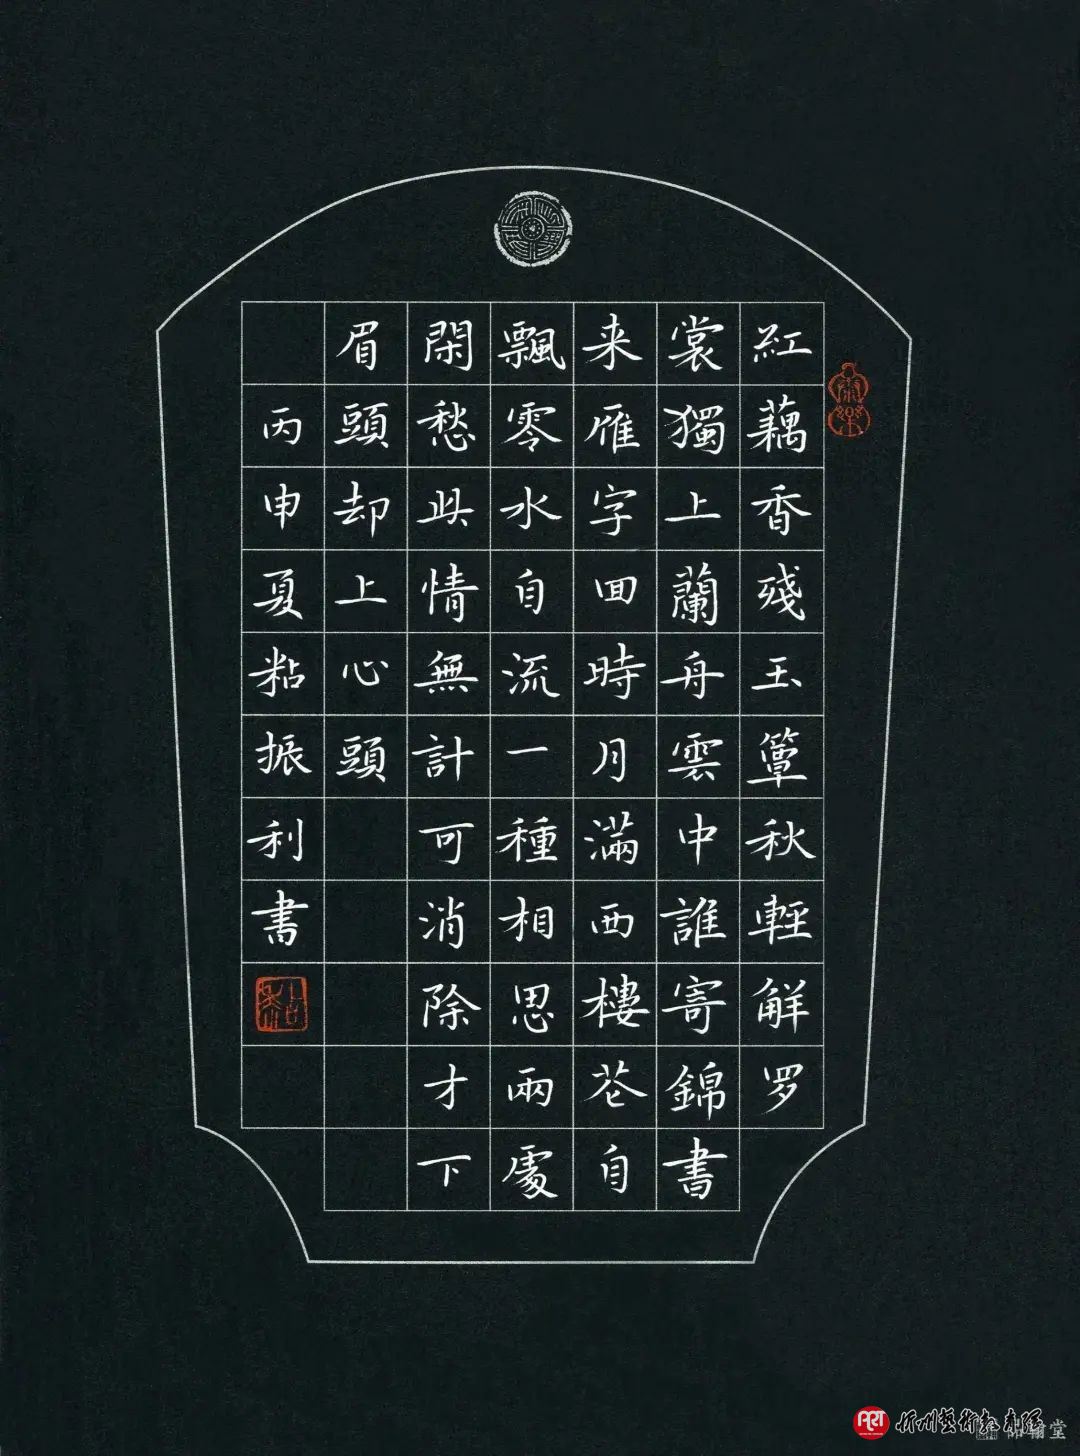 紅藕香殘玉簟秋輕觧罗
裳獨上蘭舟雲中誰寄錦書
来雁字囬時月滿西樓花自
飄零水自流一種相思兩處
閑愁此情無計可消除才下
眉頭却上心頭
丙申夏粘振利書
ART
品翰堂